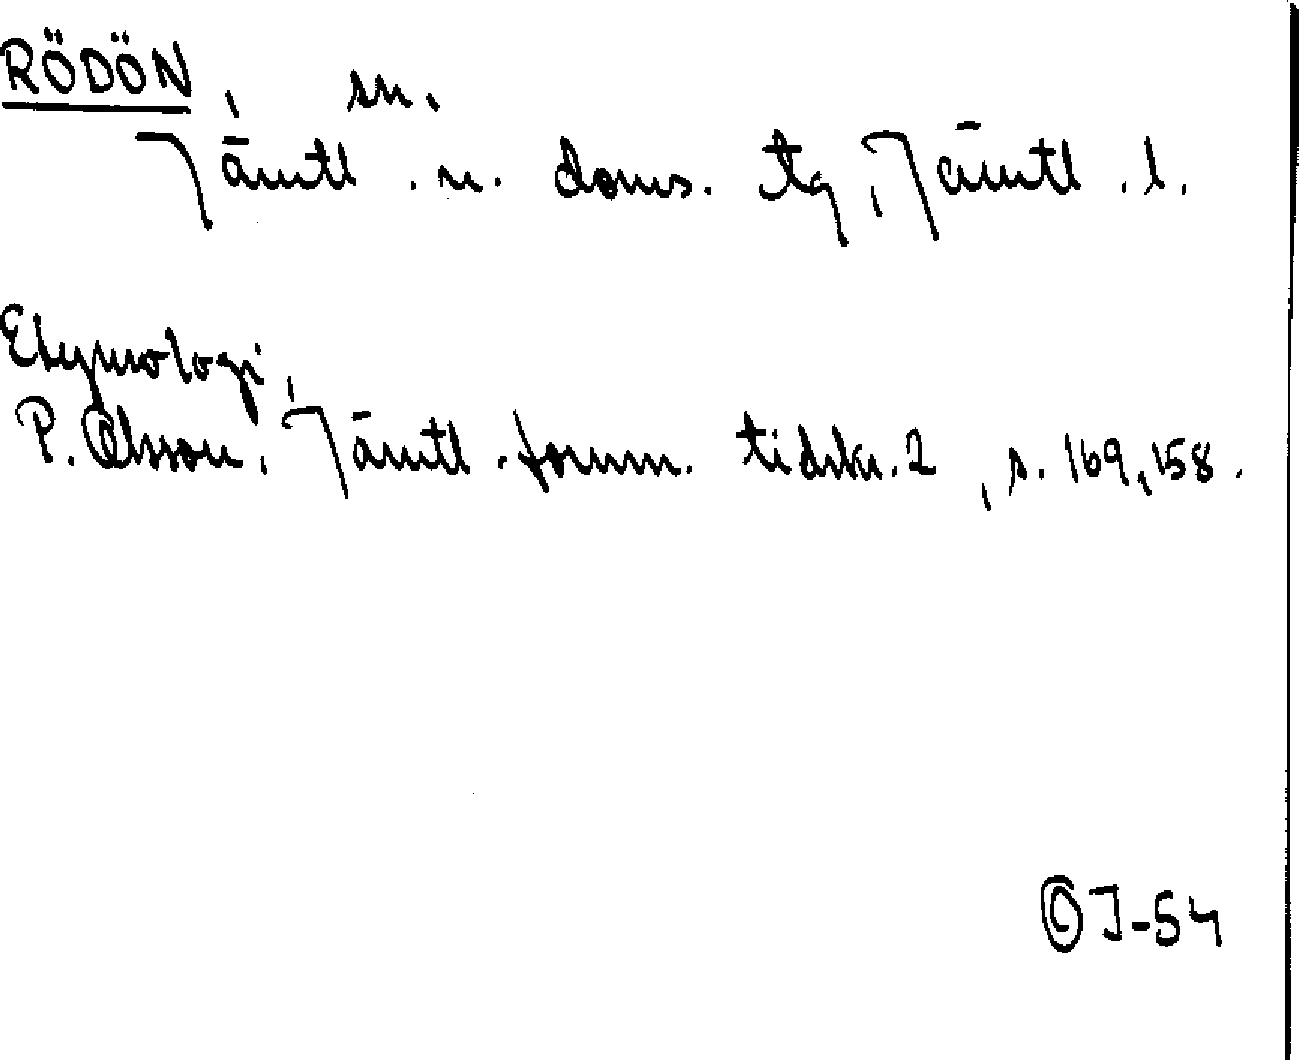 RÖDÖN, sn.
Jämtl. n. doms. tg, Jämtl. l.
Etymologi,
P. Olsson, Jämtl. fornm. tidskr. 2, s. 169, 158.
J-54